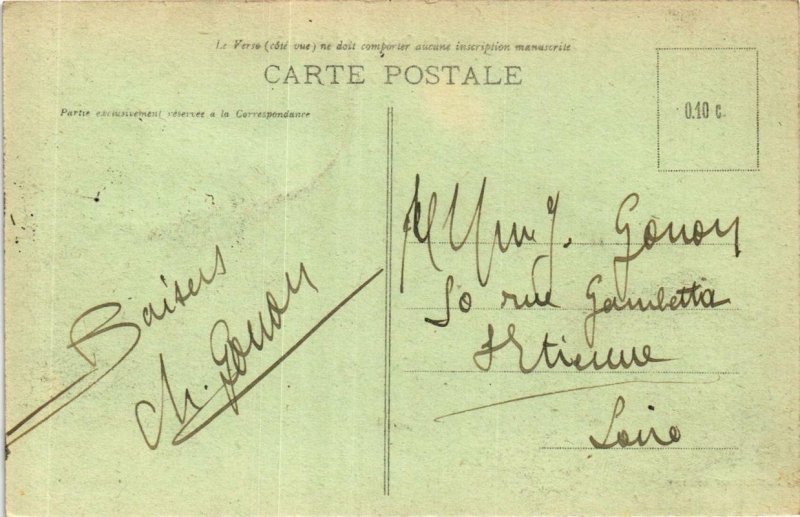 Le Verso (côté vue) ne doit comporter aucune inscription manuscrite
CARTE POSTALE
Partie exclusivement réservée a la Correspondance
0.10 c.
Baisers
Ch. Gonon
J. Gonon
rue Gambetta
St Etienne
Loire